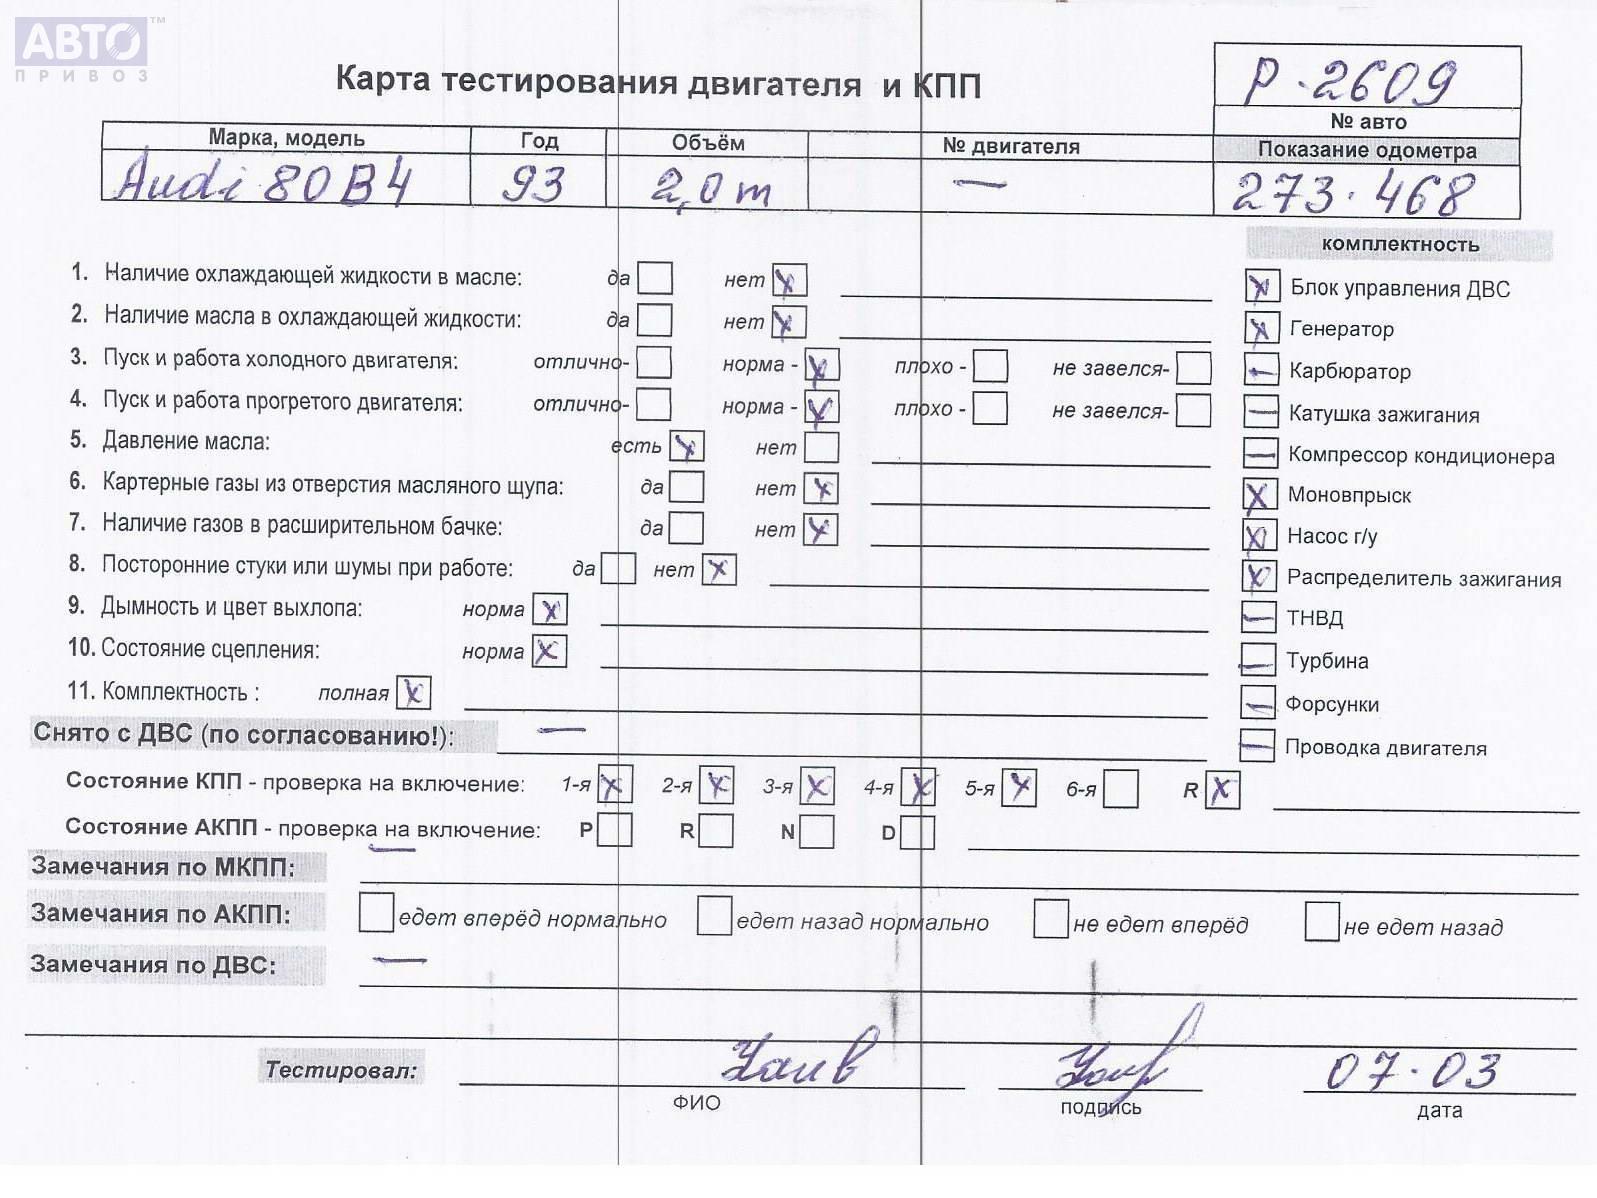 АВТО™
ПРИВОЗ
Карта тестирования двигателя и КПП
Р.2609
№ авто
Марка, модель Год Объём № двигателя Показание одометра
Audi 80B4 93 2,0 m — 273.468
комплектность
1. Наличие охлаждающей жидкости в масле: да нет x
2. Наличие масла в охлаждающей жидкости: да нет x
3. Пуск и работа холодного двигателя: отлично- норма - x плохо - не завелся-
4. Пуск и работа прогретого двигателя: отлично- норма - x плохо - не завелся-
5. Давление масла: есть x нет
6. Картерные газы из отверстия масляного щупа: да нет x
7. Наличие газов в расширительном бачке: да нет x
8. Посторонние стуки или шумы при работе: да нет x
9. Дымность и цвет выхлопа: норма x
10. Состояние сцепления: норма x
11. Комплектность : полная x
x Блок управления ДВС
x Генератор
— Карбюратор
— Катушка зажигания
— Компрессор кондиционера
x Моновпрыск
x Насос г/у
x Распределитель зажигания
— ТНВД
— Турбина
— Форсунки
— Проводка двигателя
Снято с ДВС (по согласованию!): —
Состояние КПП - проверка на включение: 1-я x 2-я x 3-я x 4-я x 5-я x 6-я R x
Состояние АКПП - проверка на включение: P R N D
Замечания по МКПП: —
Замечания по АКПП: едет вперёд нормально едет назад нормально не едет вперёд не едет назад
Замечания по ДВС: —
Тестировал: 07.03
ФИО подпись дата